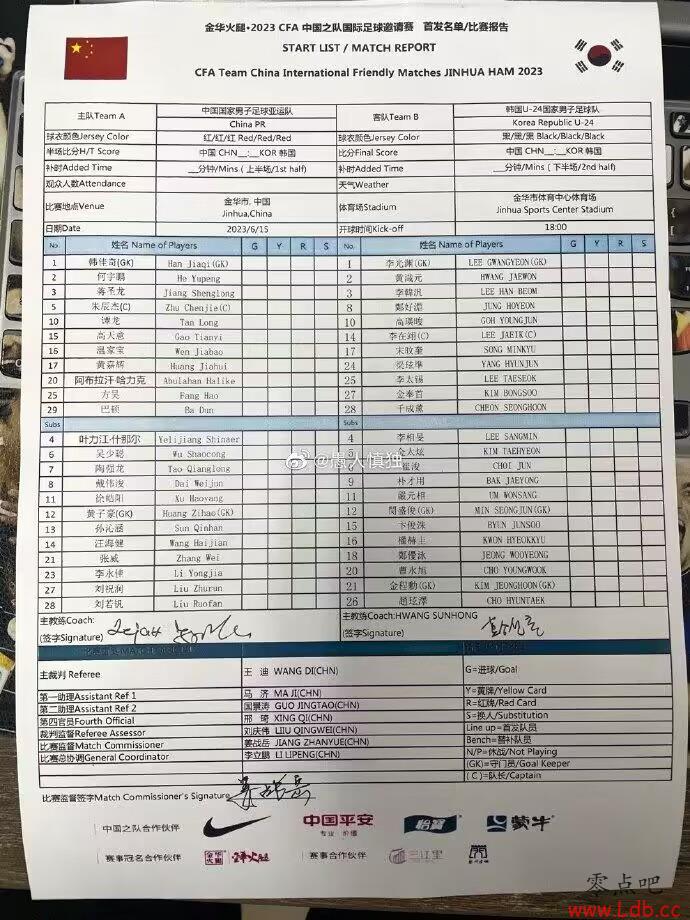 金华火腿•2023 CFA 中国之队国际足球邀请赛 首发名单/比赛报告
START LIST / MATCH REPORT
CFA Team China International Friendly Matches JINHUA HAM 2023
主队Team A 中国国家男子足球亚运队 China PR 客队Team B 韩国U-24国家男子足球队 Korea Republic U-24
球衣颜色Jersey Color 红/红/红 Red/Red/Red 球衣颜色Jersey Color 黑/黑/黑 Black/Black/Black
半场比分H/T Score 中国 CHN__:__KOR 韩国 比分Final Score 中国 CHN__:__KOR 韩国
补时Added Time __分钟/Mins (上半场/1st half) 补时Added Time __分钟/Mins (下半场/2nd half)
观众人数Attendance 天气Weather
比赛地点Venue 金华市, 中国 Jinhua,China 体育场Stadium 金华市体育中心体育场 Jinhua Sports Center Stadium
日期Date 2023/6/15 开球时间Kick-off 18:00
No. 姓名 Name of Players G Y R S No. 姓名 Name of Players G Y R S
1 韩佳奇(GK) Han Jiaqi(GK) 1 李光渊(GK) LEE GWANGYEON(GK)
2 何宇鹏 He Yupeng 2 黄 HWANG JAEWON
3 蒋圣龙 Jiang Shenglong 3 李韓汎 LEE HAN BEOM
5 朱辰杰(C) Zhu Chenjie(C) 8 鄭好淵 JUNG HOYEON
10 谭龙 Tan Long 10 高瑛晙 GOH YOUNGJUN
15 高天意 Gao Tianyi 14 李在翊(C) LEE JAEIK(C)
16 温家宝 Wen Jiabao 17 宋旼奎 SONG MINKYU
17 黄嘉辉 Huang Jiahui 24 梁 YANG HYUNJUN
20 阿布拉汗·哈力克 Abulahan Halike 25 李太锡 LEE TAESEOK
25 方昊 Fang Hao 27 金奉首 KIM BONGSOO
29 巴顿 Ba Dun 28 千成薰 CHEON SEONGHOON
Subs Subs
4 叶力江·什那尔 Yelijiang Shinaer 4 李相旻 LEE SANGMIN
6 吴少聪 Wu Shaocong 5 金太炫 KIM TAEHYEON
7 陶强龙 Tao Qianglong 7 崔浚 CHOI JUN
8 戴伟浚 Dai Weijun 9 朴才用 BAK JAEYONG
11 徐皓阳 Xu Haoyang 11 嚴元相 UM WONSANG
12 黄子豪(GK) Huang Zihao(GK) 12 閔盛俊(GK) MIN SEONGJUN(GK)
13 孙沁涵 Sun Qinhan 15 卞俊洙 BYUN JUNSOO
14 汪海健 Wang Haijian 16 權赫圭 KWON HYEOKKYU
21 张威 Zhang Wei 18 鄭優泳 JEONG WOOYEONG
23 李永佳 Li Yongjia 20 曹永旭 CHO YOUNGWOOK
27 刘祝润 Liu Zhurun 21 金程勳(GK) KIM JEONGHOON(GK)
28 刘若钒 Liu Ruofan 26 趙玹澤 CHO HYUNTAEK
主教练Coach: 主教练Coach:HWANG SUNHONG
(签字Signature) (签字Signature)
主裁判 Referee 王 迪 WANG DI(CHN) G=进球/Goal
第一助理Assistant Ref 1 马 济 MA JI(CHN) Y=黄牌/Yellow Card
第二助理Assistant Ref 2 国景涛 GUO JINGTAO(CHN) R=红牌/Red Card
第四官员Fourth Official 邢 琦 XING QI(CHN) S=换人/Substitution
裁判监督Referee Assessor 刘庆伟 LIIU QINGWEI(CHN) Line up=首发队员
比赛监督Match Commissioner 姜战岳 JIANG ZHANYUE(CHN) Bench=替补队员
比赛总协调General Coordinator 李立鹏 LI LIPENG(CHN) N/P=休战/Not Playing
(GK)=守门员/Goal Keeper
(C)=队长/Captain
比赛监督签字Match Commissioner's Signature
中国之队合作伙伴 中国平安 专业·价值 怡寶 蒙牛
赛事冠名合作伙伴 金华火腿 赛事合作伙伴 三江里
@愚人慎独
零点吧
www.Ldb.cc